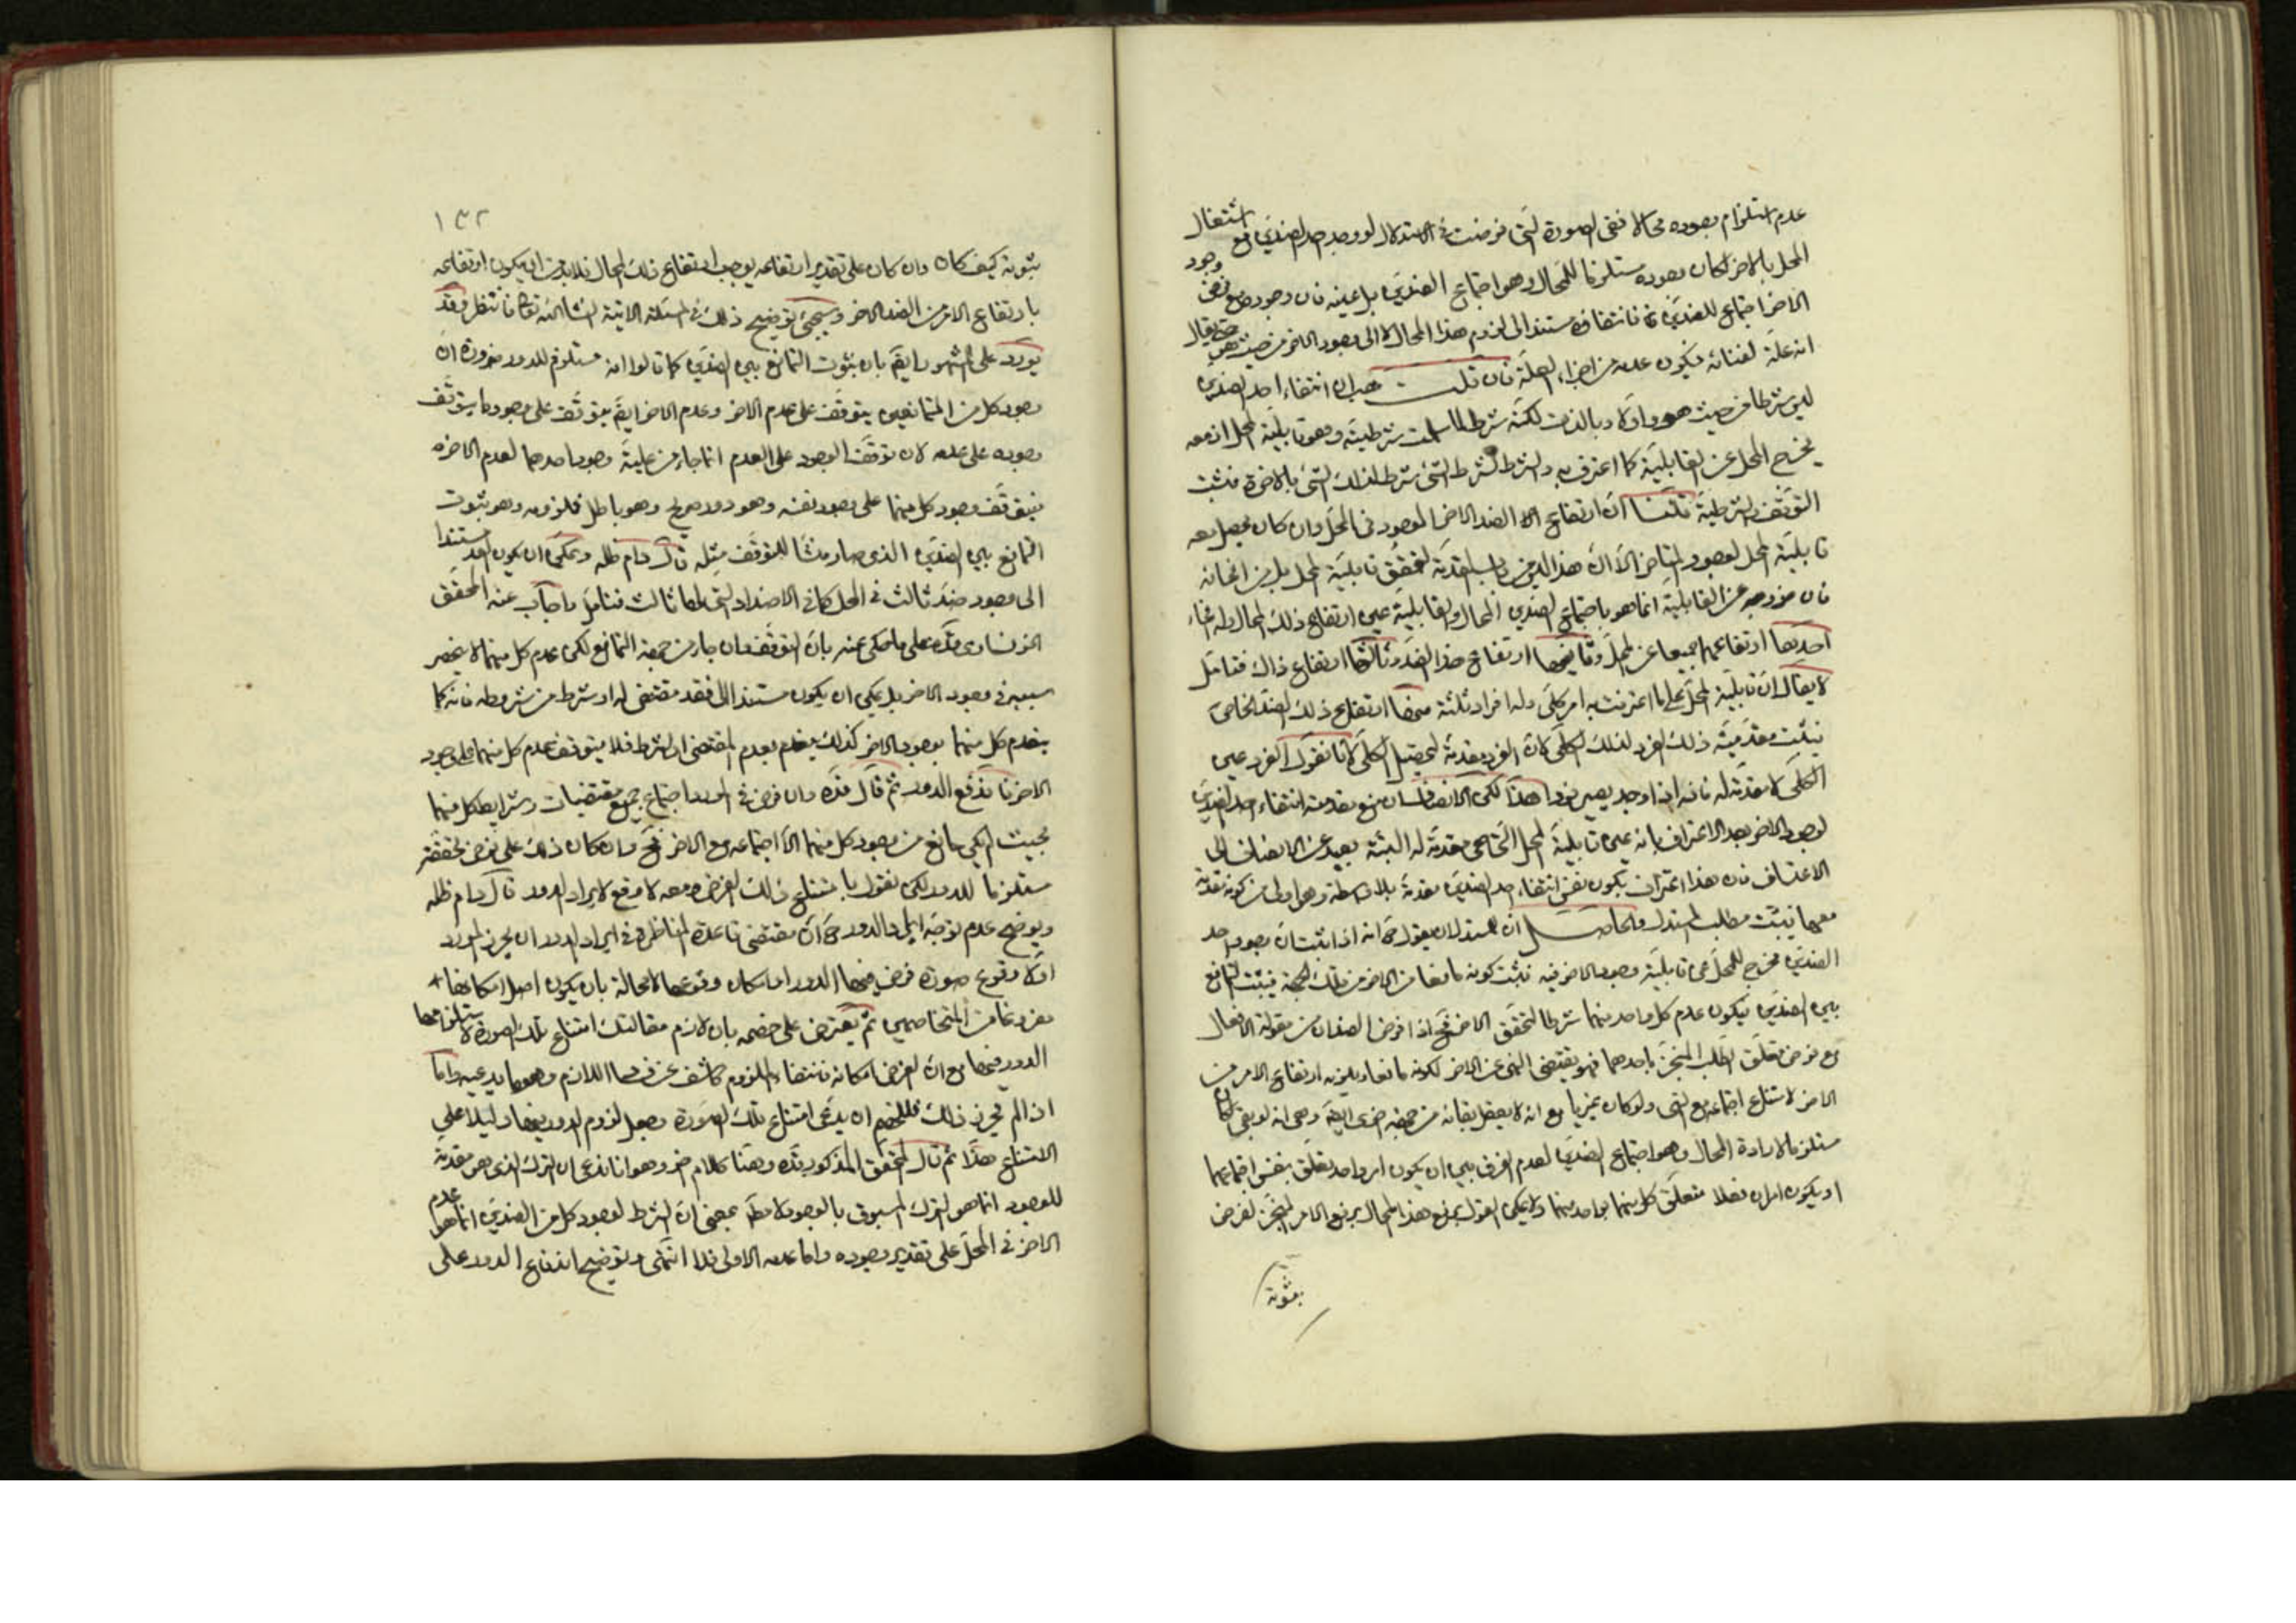 عدم استلزام وجوده محالا ففي الصورة التي فرضت في الاستدلال لو وجد احد الضدين مع اشتغال
المحل بالاخر لكان وجوده مستلزما للمحال وهو اجتماع الضدين بل عينه فان وجوده مع فرض وجود
الاخر اجتماع للضدين فانتفاؤه مستند الى لزوم هذا المحال لا الى وجود الاخر من حيث هو حتى يقال
انه علة لفنائه فيكون عدمه من اجزاء العلة فان قلت هب ان انتفاء احد الضدين
ليس شرطا من حيث هو واولا وبالذات لكنه شرط لما سلمت شرطيته وهو قابلية المحل اذ معه
يخرج المحل عن القابلية كما اعترف به والشرط لشرط الشئ شرط لذلك الشئ بالاخرة فثبت
التوقف والشرطية قلنا ان ارتفاع الضد الاخر الموجود في المحل وان كان يحصل معه
قابلية المحل لوجود المتاخر الا ان هذا ليس من باب المقدمة لتحقق قابلية المحل بل من انحائه
فان خروجه عن القابلية انما هو باجتماع الضدين المحال والقابلية عين ارتفاع ذلك المحال وله انحاء
احدها ارتفاعهما جميعا عن المحل وثانيها ارتفاع هذا الضد وثالثها ارتفاع ذاك فتامل
لا يقال ان قابلية المحل على ما اعترفت به امر كلي وله افراد ثلثة منها ارتفاع ذلك الضد الخاص
فيثبت مقدمية ذلك الفرد لذلك الكلي لان الفرد مقدمة لتحصيل الكلي لانا نقول الفرد عين
الكلي لا مقدمة له فانه اذا وجد يصير فردا هذا لكن الانصاف ان منع مقدمية انتفاء احد الضدين
لوجود الاخر بعد الاعتراف بانه عين قابلية المحل التي هي مقدمة له البتة بعيد عن الانصاف الى
الاعتساف فان هذا اعتراف بكون نفس انتفاء احد الضدين مقدمة بلا واسطة وهو اولى من كونه مقدمة
معها يثبت مطلب المستدل والحاصل ان للمستدل ان يقول ح انه اذا ثبت ان وجود احد
الضدين مخرج للمحل عن قابلية وجود الاخر فيه ثبت كونه مانعا من الاخر من تلك الجهة فيثبت التمانع
بين الضدين فيكون عدم كل واحد منهما شرطا لتحقق الاخر فح اذا فرض الضدان من مقولة الافعال
مع فرض تعلق الطلب المنجز باحدهما فهو يقتضي النهي عن الاخر لكونه مانعا ويلزمه ارتفاع الامر من
الاخر لامتناع اجتماعه مع النهي ولو كان غيريا مع انه لا يعقل بقائه من جهة اخرى ايضا وهي انه لو بقي لكان
مستلزما لارادة المحال وهو اجتماع الضدين لعدم الفرق بين ان يكون امر واحد يتعلق بنفس اجتماعهما
او يكون امران فعلا متعلق كل منهما بواحد منهما ولا يمكن القول برفع هذا المحال برفع الامر المنجز لفرض
بثبوته
١٣٢
ثبوته كيف كان وان كان على تقدير ارتفاعه يوجب ارتفاع ذلك المحال فلا بد من ان يكون ارتفاعه
بارتفاع الامر من الضد الاخر وسيجئ توضيح ذلك في المسئلة الاتية انشاء الله تعالى فانتظر وقد
يورد على المشهور ايضا بان ثبوت التمانع بين الضدين كما قالوا انه مستلزم للدور ضرورة ان
وجود كل من المتمانعين يتوقف على عدم الاخر وعدم الاخر ايضا يتوقف على وجود ما يتوقف
وجوده على عدمه لان توقف الوجود على العدم انما جاء من علية وجود احدهما لعدم الاخر
فيتوقف وجود كل منهما على وجود نفسه وهو دور صريح وهو باطل فملزومه وهو ثبوت
التمانع بين الضدين الذي صار منشأ للتوقف مثله قال دام ظله ويمكن ان يكون العدم مستندا
الى وجود ضد ثالث في المحل كما في الاضداد التي لها ثالث فتامل واجاب عنه المحقق
الخونساري قده على ما حكي عنه بان التوقف وان جاء من جهة التمانع لكن عدم كل منهما لا ينحصر
سببه في وجود الاخر بل يمكن ان يكون مستندا الى فقد مقتضى له او شرط من شروطه فانه كما
ينعدم كل منهما بوجود الاخر كذلك ينعدم بعدم المقتضي او الشرط فلا يتوقف عدم كل منهما على وجود
الاخر فاندفع الدور ثم قال قده وان فرض في المورد اجتماع جميع مقتضيات وشرايط كل منهما
بحيث لم يكن مانع من وجود كل منهما الا اجتماعه مع الاخر فح وان كان ذلك على فرض تحققه
مستلزما للدور لكن نقول بامتناع ذلك الفرض ومعه لا موقع لايراد الدور قال دام ظله
ويوضح عدم توجه الايراد بالدور ح ان مقتضى قاعدة المناظرة في ايراد الدور ان يحرز المورد
اولا وقوع صورة فرض فيها الدور او امكان وقوعها لا محالة بان يكون اصل امكانها
مفروغا من المتخاصمين ثم يعترض على خصمه بان لازم مقالتك امتناع تلك الصورة لاستلزامها
الدور فيها مع ان المفروض امكانه فانتفاء الملزوم كاشف عن فساد اللازم وهو ما يدعيه واما
اذا لم يحرز ذلك فللخصم ان يدعي امتناع تلك الصورة ويجعل لزوم الدور فيها دليلا على
الامتناع هذا ثم قال المحقق المذكور قده وهنا كلام اخر وهو انا ندعي ان الترك الذي هو مقدمة
للوجود انما هو الترك المسبوق بالوجود لا مطلقا بمعنى ان الشرط لوجود كل من الضدين انما هو عدم
الاخر في المحل على تقدير وجوده واما عدمه الاولى فلا انتهى وتوضيح اندفاع الدور على